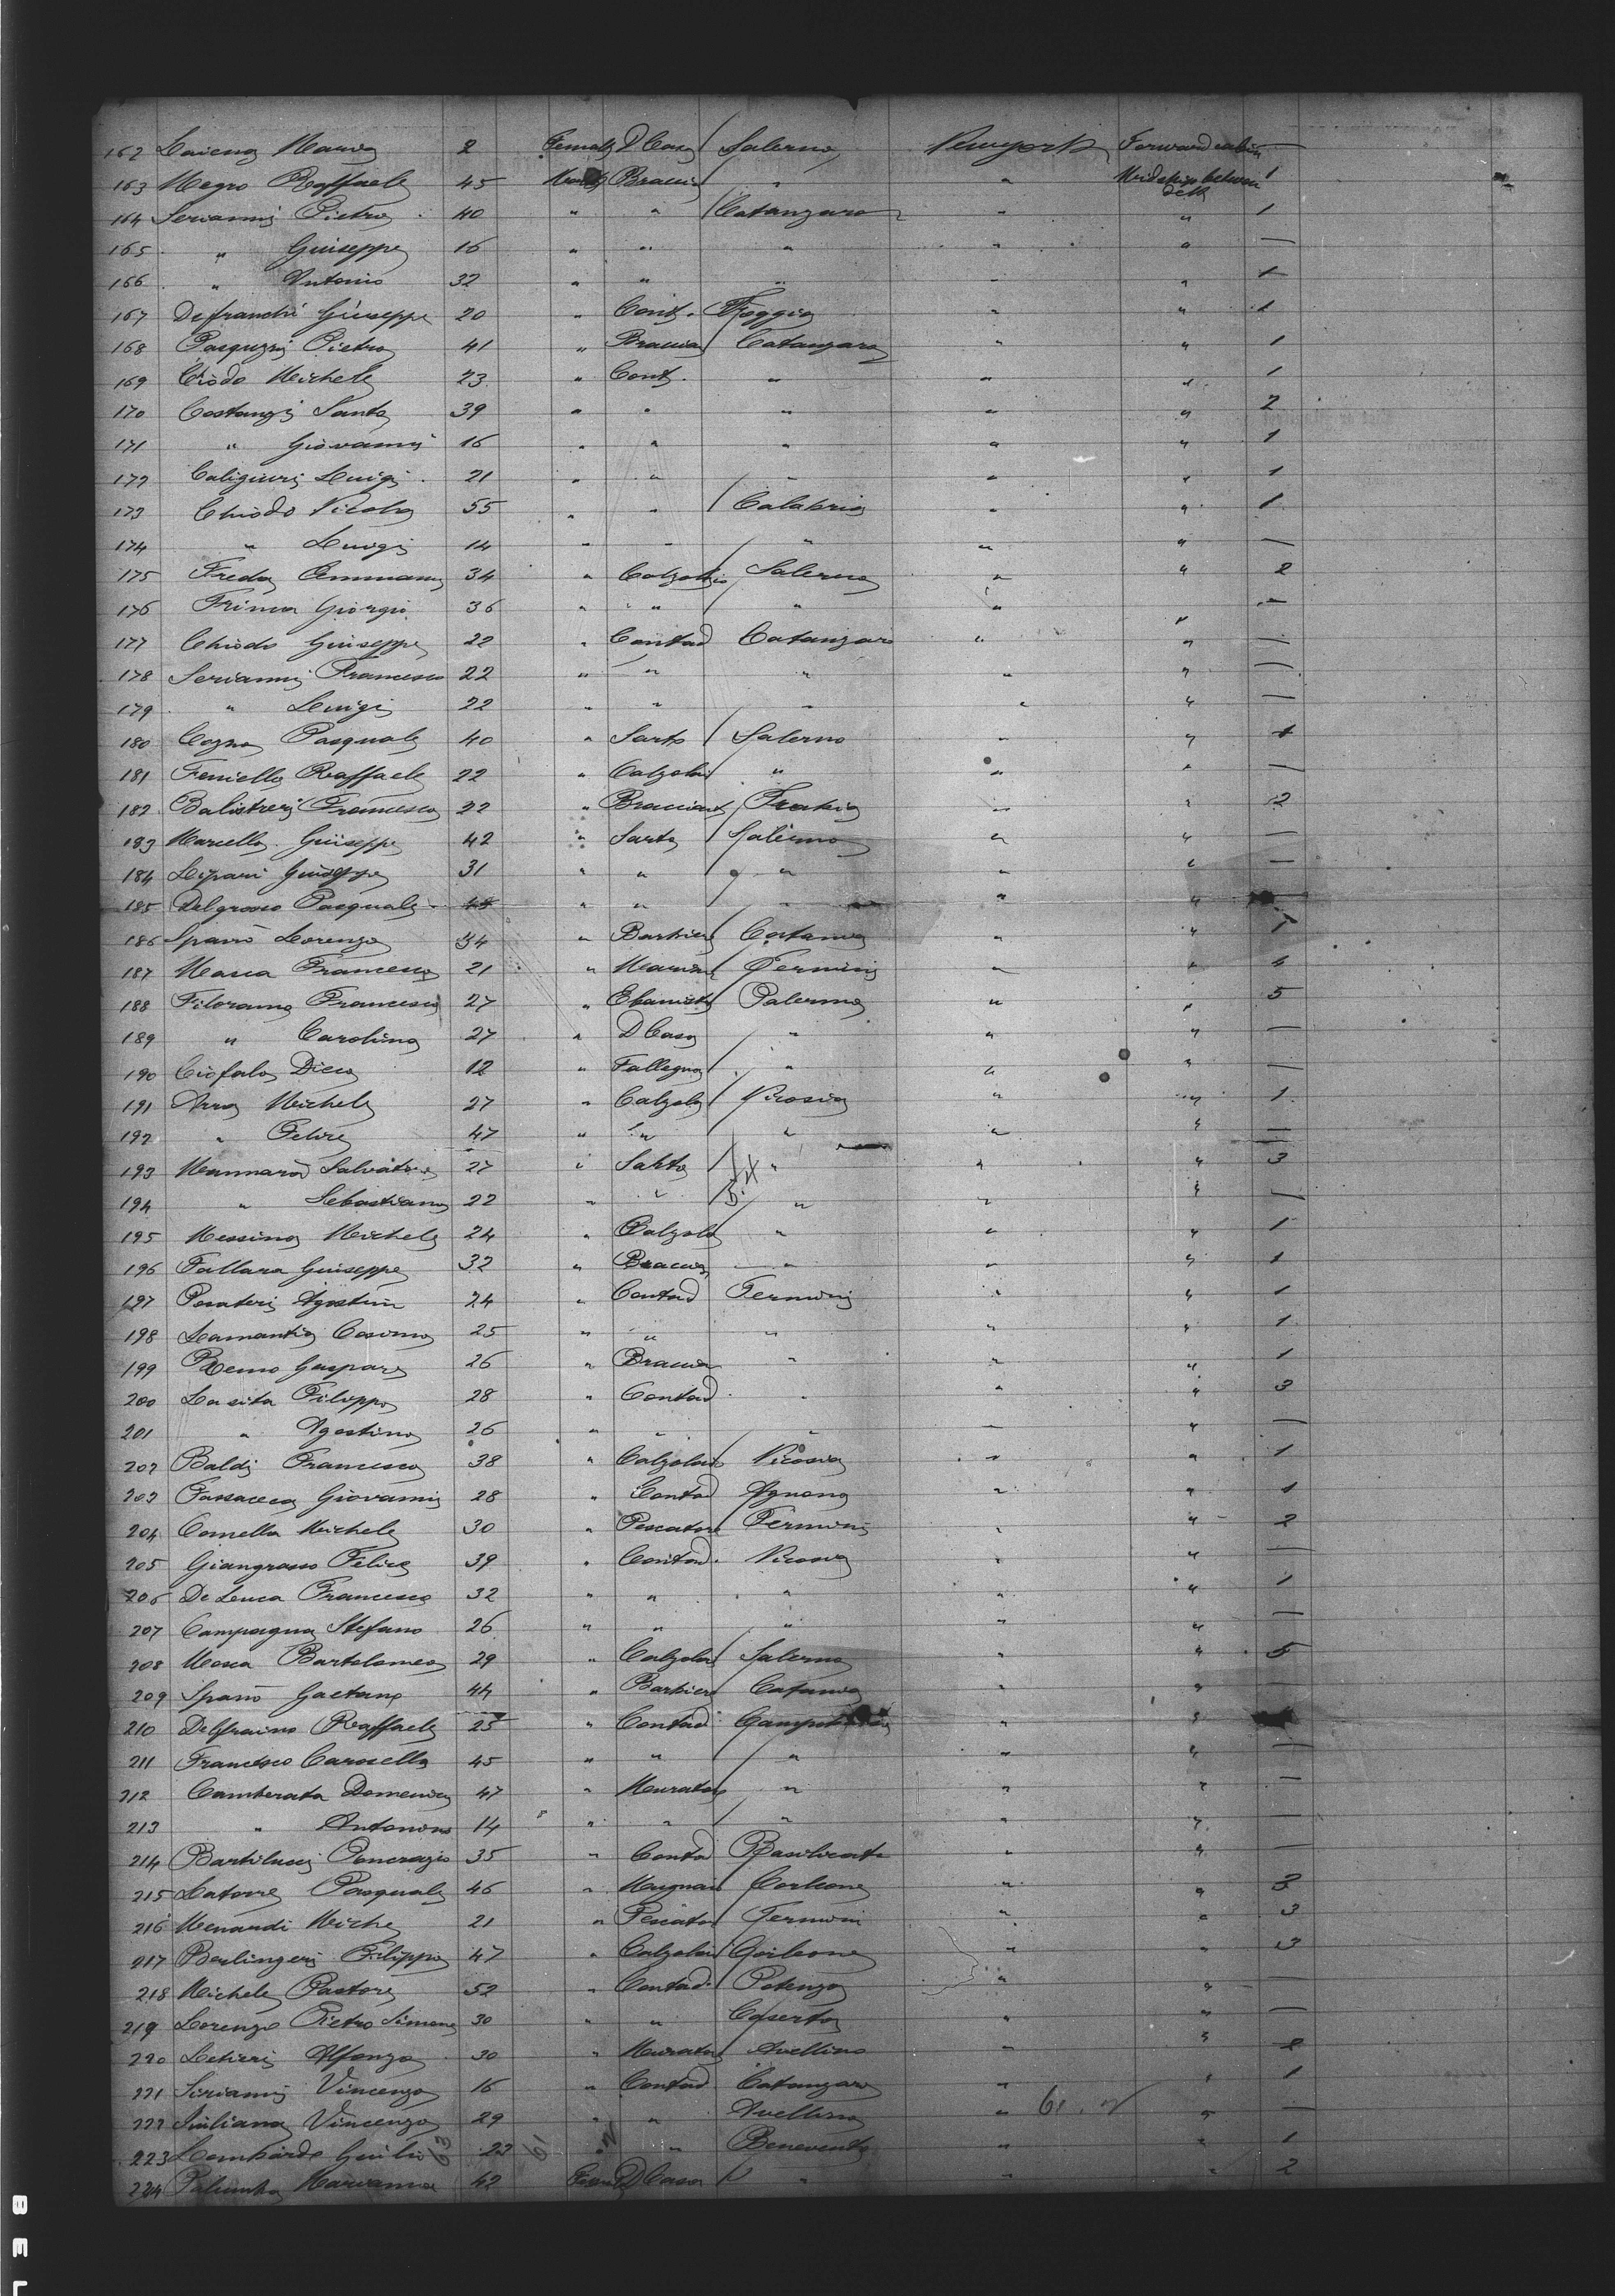 162 Maria 2 Female D Casa Salerno Newyork Forward cabin —
163 Negro Raffaele 45 Braccia " " Midship between deck 1
164 Serianni Pietro 40 " " Catanzaro " " 1
165 " Giuseppe 16 " " " " " —
166 " Antonio 32 " " " " " 1
167 Defranchi Giuseppe 20 " Cont. Foggia " " 1
168 Pasquzzi Pietro 41 " Braccia Catanzaro " " 1
169 Criodo Michele 23 " Cont. " " " 1
170 Costanzi Santo 39 " " " " " 2
171 " Giovanni 16 " " " " " 1
172 Caligiuri Luigi 21 " " " " " 1
173 Chiodo Nicola 55 " " Calabria " " 1
174 " Luigi 14 " " " " " —
175 Freda 34 " Calzolaio Salerno " " 2
176 Giorgio 36 " " " " " —
177 Chiodo Giuseppe 22 " Contad Catanzaro " " —
178 Serianni Francesco 22 " " " " " —
179 " Luigi 22 " " " " " —
180 Cozza Pasquale 40 " Sarto Salerno " " 1
181 Feniello Raffaele 22 " Calzolai " " " —
182 Balistreri Francesco 22 " Bracciant " " 2
183 Marcello Giuseppe 42 " Sarto Salerno " " —
184 Lipari Giuseppe 31 " " " " " —
185 Delgrosso Pasquale " " " " " —
186 Spanò Lorenzo 34 " Barbiere Catania " " 1
187 Masca Francesco 21 " Marina Termini " "
188 Filorama Francesco 27 " Ebanista Palermo " " 5
189 " Carolina 27 " D Casa " " " —
190 Ciofalo Diego 12 " Fallegna " " " —
191 Arra Michele 27 " Calzola Nicosia " " 1
192 " Felice 47 " " " " " —
193 Mannarò Salvatore 27 " Sarto " " " 3
194 " Sebastiano 22 " " " " " —
195 Messina Michele 24 " Calzola " " " 1
196 Fallara Giuseppe 32 " Braccia " " " 1
197 Agostino 24 " Contad Termini " " 1
198 Lamantia Cosimo 25 " " " " " 1
199 Gaspare 26 " Braccia " " " 1
200 Lasita Filippo 28 " Contad " " " 3
201 " Agostino 26 " " " " " —
202 Baldi Francesco 38 " Calzolaio Nicosia " " 1
203 Giovanni 28 " Contad Agnone " " 1
204 Comella Michele 30 " Pescatore Termini " " 2
205 Giangrasso Felice 39 " Contad. Nicosia " " —
206 De Leuca Francesco 32 " " " " " 1
207 Campagna Stefano 26 " " " " " —
208 Mosca Bartolomeo 29 " Calzolai Salerno " " 5
209 Spanò Gaetano 44 " Barbiere Catania " " —
210 Raffaele 25 " Contad " "
211 Francesco Carosella 45 " " " " " —
212 Camberata Domenico 47 " Muratore " " " —
213 " Antonino 14 " " " " " —
214 Bartilucci Pancrazio 35 " Contad Basilicata " " —
215 Latorre Pasquale 46 " Mugnaio Corleone " " 3
216 Menandi Miche 21 " Pescator Termini " " 3
217 Berlingeri Filippo 47 " Calzolai Corleone " " 3
218 Michele Pastore 52 " Contad. Potenza " " —
219 Lorenzo Pietro Simone 30 " " Caserta " " —
220 Letieri Alfonzo 30 " Murator Avellino " " 2
221 Serianni Vincenzo 16 " Contad Catanzaro " " 1
222 Juliano Vincenzo 29 " " Avellino " " —
223 Lombardo Giulio 23 " " Benevento " " 1
224 Palumbo Marianna 42 D Casa " " " 2